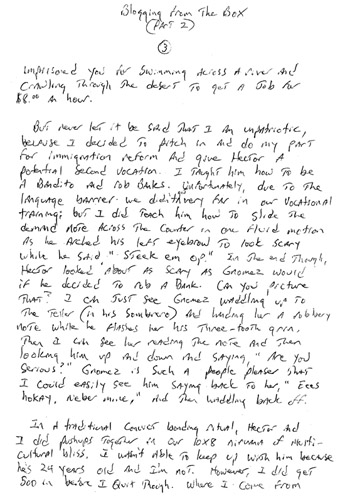 Blogging From The Box
(Part 2)
3
imprisoned you for swimming across a river and
crawling through the desert to get a job for
$8.00 an hour.
But never let it be said that I am unpatriotic,
because I decided to pitch in and do my part
for immigration reform and give Hector a
potential second vocation. I taught him how to be
a Bandito and rob banks. Unfortunately, due to the
language barrier we didn't very far in our vocational
training; but I did teach him how to slide the
demand note across the counter in one fluid motion
as he arched his left eyebrow to look scary
while he said "Steek em op." In the end though,
Hector looked about as scary as Gnomez would
if he decided to rob a bank. Can you picture
that? I can just see Gnomez waddling up to
the teller (in his sombrero) and handing her a robbery
note while he flashes her his three-tooth grin.
Then I can see her reading the note and then
looking him up and down and saying, "Are you
serious?" Gnomez is such a people pleaser that
I could easily see him saying back to her, "Ees
hokay, never mine," and then waddling back off.
In a traditional convict bonding ritual, Hector and
I did pushups together in our 10x8 nirvana of multi-
cultural bliss. I wasn't able to keep up with him because
he's 24 years old and I'm not. However, I did get
500 in before I quit though. Where I come from